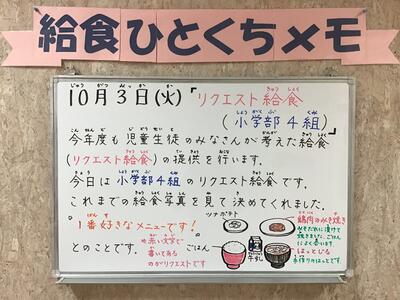 給食ひとくちメモ
10月3日(火)「リクエスト給食」
(小学部4組)
今年度も児童生徒のみなさんが考えた給食
(リクエスト給食)の提供を行います。
今日は小学部4組のリクエスト給食です。
これまでの給食写真を見て決めてくれました。
1番好きなメニューです!
とのことです。
※赤い文字で
書いてある
のがリクエストです
ツナポテト
ごはん
牛乳
鶏肉のみそ焼き
みそだれに漬けて
焼きました。ごはん
によく合います。
はっとじる
手作りのはっとです。